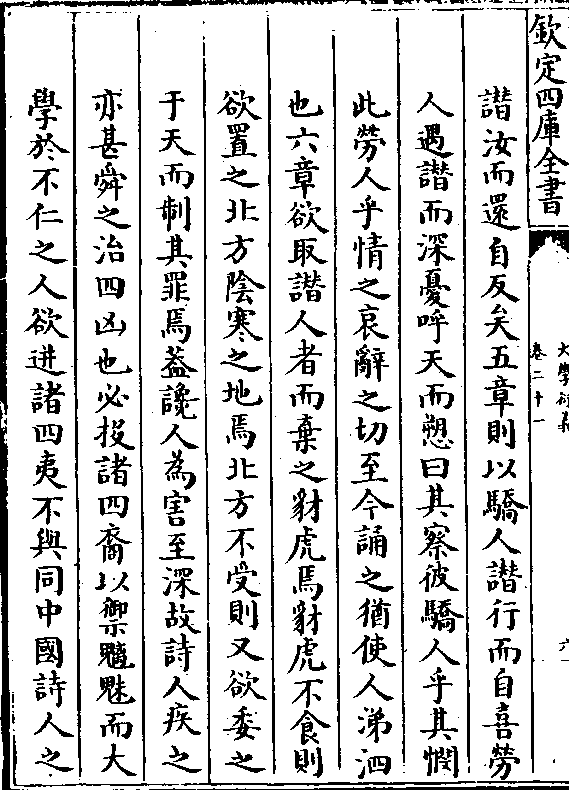 欽定四庫全書
大學衍義
卷二十一
六
譖汝而還自反矣五章則以驕人譖行而自喜勞
人遇譖而深憂呼天而愬曰其察彼驕人乎其憫
此勞人乎情之哀辭之切至今誦之猶使人涕泗
也六章欲取譖人者而棄之豺虎焉豺虎不食則
欲置之北方陰寒之地焉北方不受則又欲委之
于天而制其罪焉蓋讒人為害至深故詩人疾之
亦甚舜之治四凶也必投諸四裔以禦魑魅而大
學於不仁之人欲迸諸四夷不與同中國詩人之